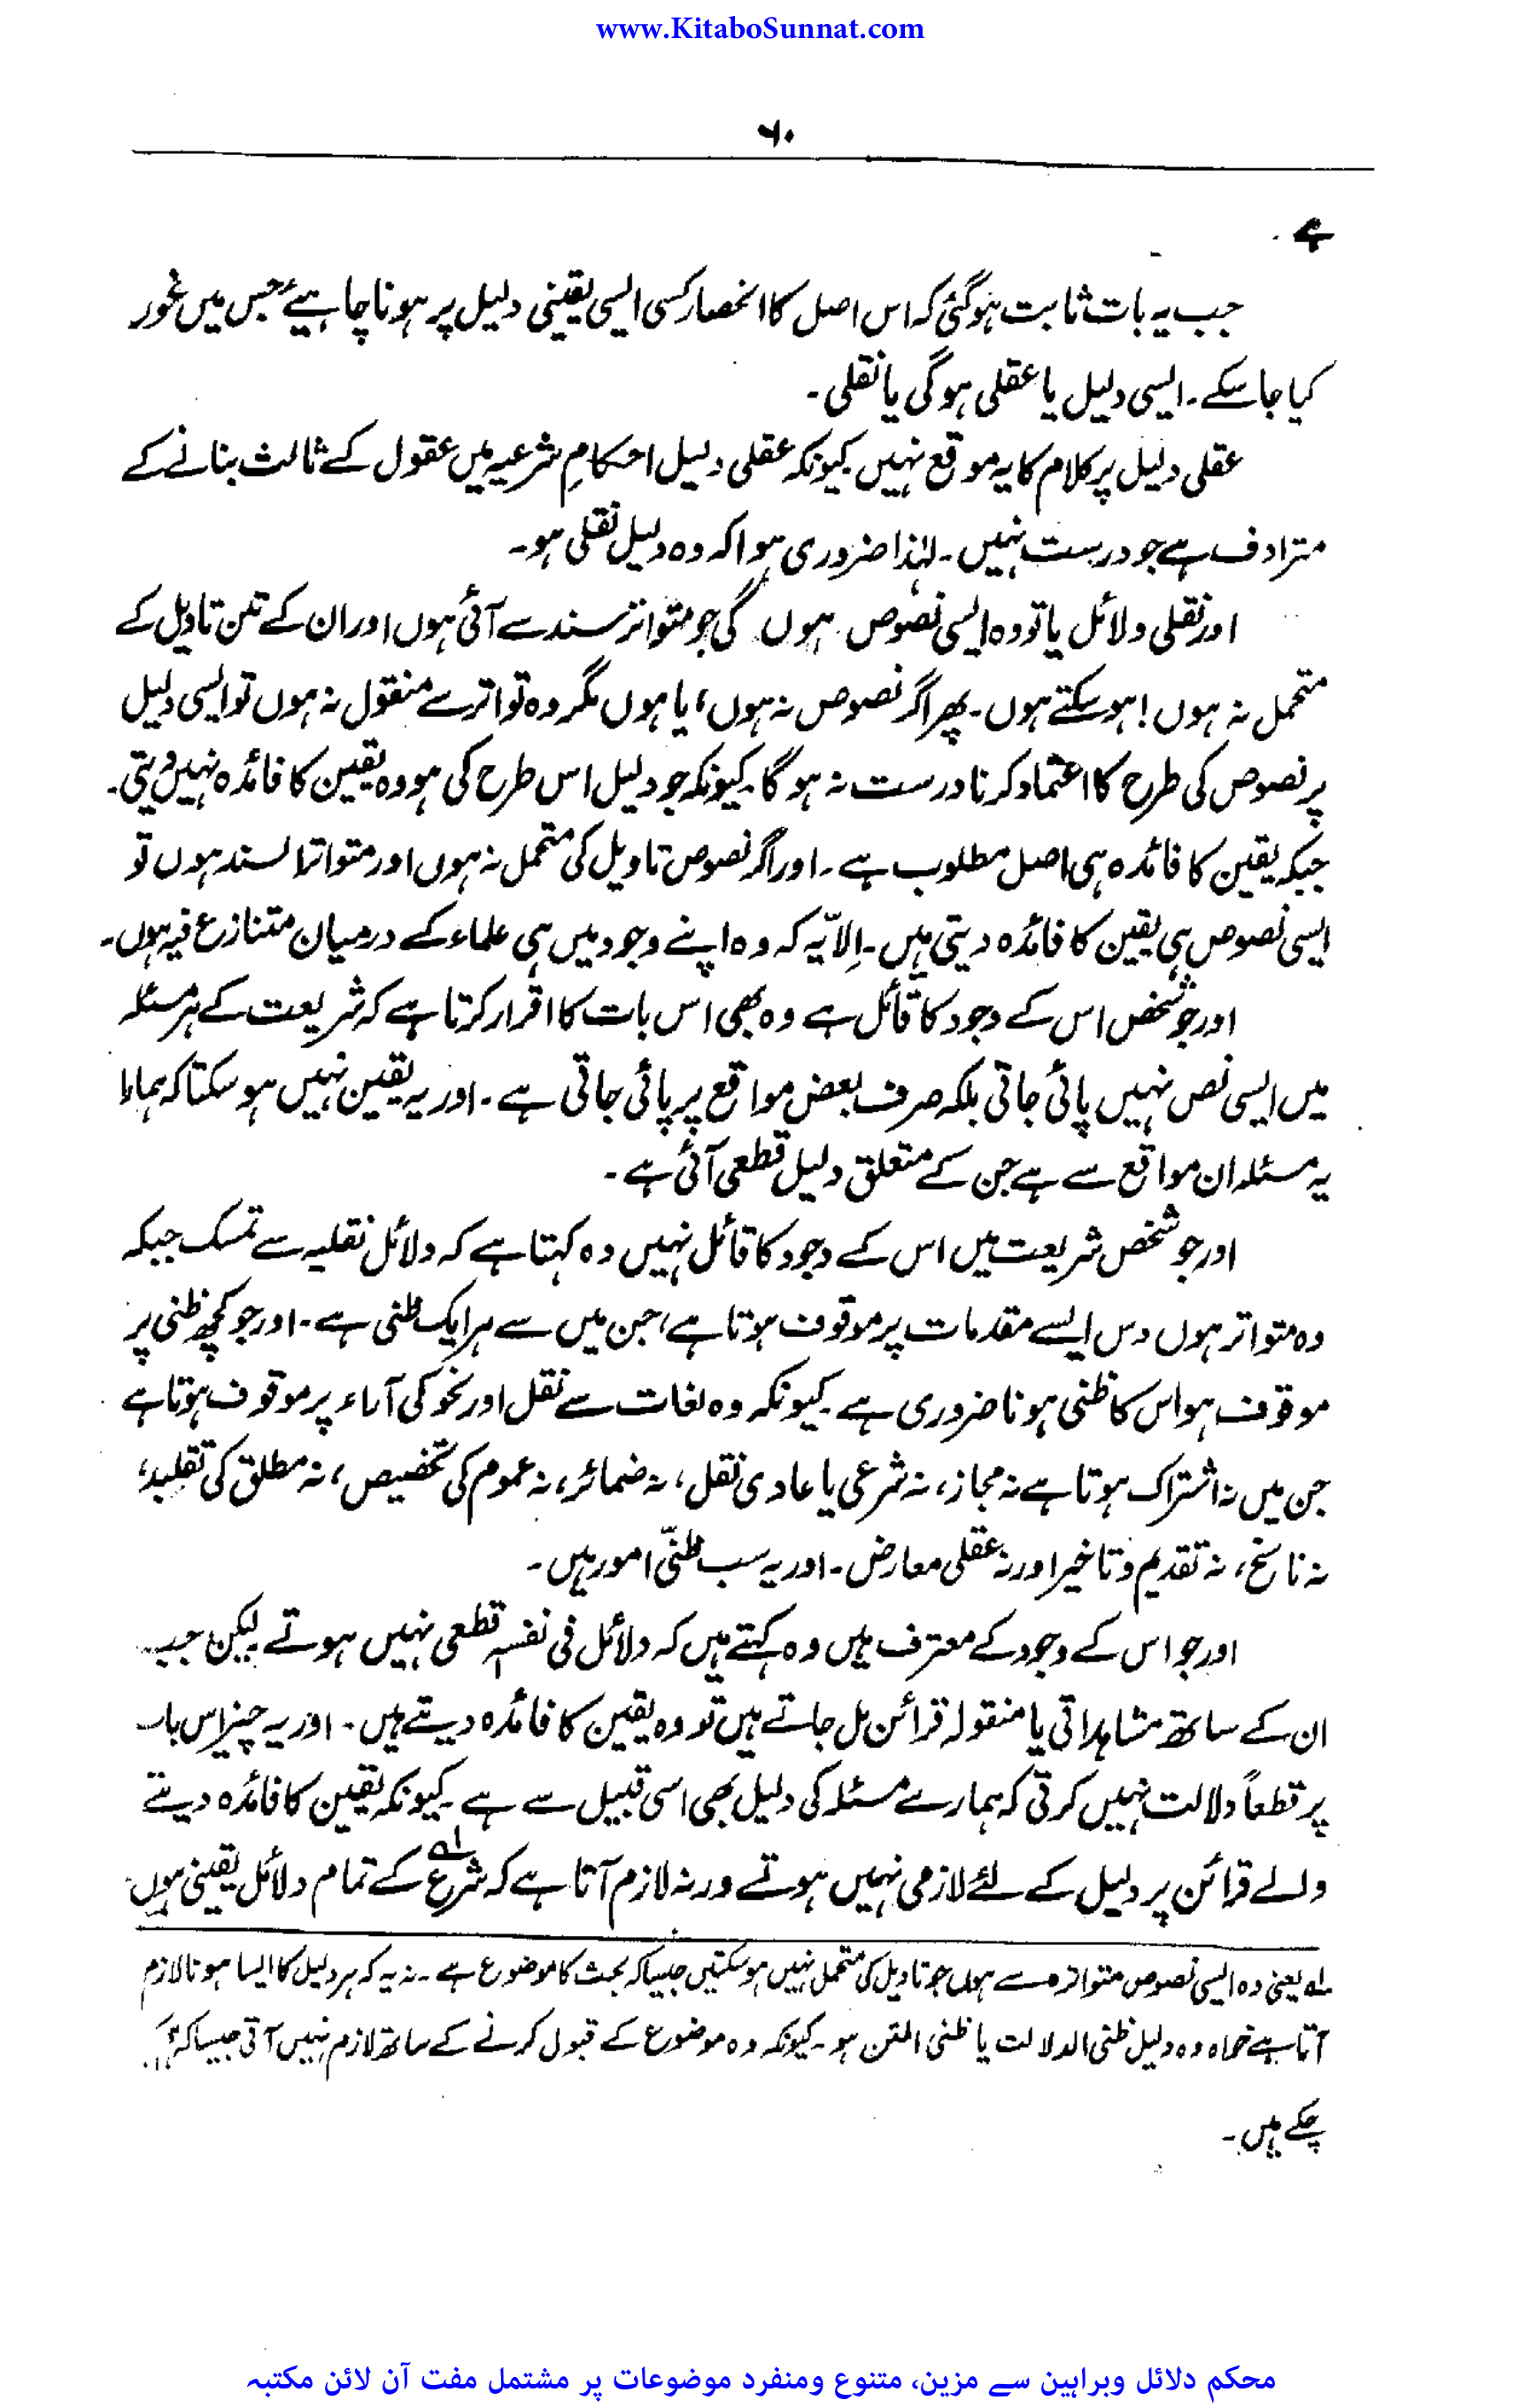 www.KitaboSunnat.com
۶۰
ہے۔
جب یہ بات ثابت ہوگئی کہ اس اصل کا انحصار کسی ایسی یقینی دلیل پر ہونا چاہیئے جس میں غور
کیا جا سکے۔ ایسی دلیل یا عقلی ہوگی یا نقلی۔
عقلی دلیل پر کلام کا یہ موقع نہیں کیونکہ عقلی دلیل احکامِ شرعیہ میں عقول کے ثالث بنانے کے
مترادف ہے جو درست نہیں۔ لہٰذا ضروری ہوا کہ وہ دلیل نقلی ہو۔
اور نقلی دلائل یا تو وہ ایسی نصوص ہوں گی جو متواتر سند سے آئی ہوں اور ان کے تن تاویل کے
متحمل نہ ہوں! ہو سکتے ہوں۔ پھر اگر نصوص نہ ہوں، یا ہوں مگر وہ تواتر سے منقول نہ ہوں تو ایسی دلیل
پر نصوص کی طرح کا اعتماد کرنا درست نہ ہوگا۔ کیونکہ جو دلیل اس طرح کی ہو وہ یقین کا فائدہ نہیں دیتی۔
جبکہ یقین کا فائدہ ہی اصل مطلوب ہے۔ اور اگر نصوص تاویل کی متحمل نہ ہوں اور متواتر السند ہوں تو
ایسی نصوص ہی یقین کا فائدہ دیتی ہیں۔ اِلاّ یہ کہ وہ اپنے وجود میں ہی علماء کے درمیان متنازع فیہ ہوں۔
اور جو شخص اس کے وجود کا قائل ہے وہ بھی اس بات کا اقرار کرتا ہے کہ شریعت کے ہر مسئلہ
میں ایسی نص نہیں پائی جاتی بلکہ صرف بعض مواقع پر پائی جاتی ہے۔ اور یہ یقین نہیں ہو سکتا کہ ہمارا
یہ مسئلہ ان مواقع سے ہے جن کے متعلق دلیل قطعی آئی ہے۔
اور جو شخص شریعت میں اس کے وجود کا قائل نہیں وہ کہتا ہے کہ دلائل نقلیہ سے تمسک جبکہ
وہ متواتر ہوں دس ایسے مقدمات پر موقوف ہوتا ہے، جن میں سے ہر ایک ظنی ہے۔ اور جو کچھ ظنی پر
موقوف ہو اس کا ظنی ہونا ضروری ہے کیونکہ وہ لغات سے نقل اور نحو کی آراء پر موقوف ہوتا ہے
جن میں نہ اشتراک ہوتا ہے نہ مجاز، نہ شرعی یا عادی نقل، نہ ضمائر، نہ عموم کی تخصیص، نہ مطلق کی تقلید،
نہ ناسخ، نہ تقدیم و تاخیر اور نہ عقلی معارض۔ اور یہ سب ظنیّ امور ہیں۔
اور جو اس کے وجود کے معترف ہیں وہ کہتے ہیں کہ دلائل فی نفسہٖ قطعی نہیں ہوتے لیکن جب
ان کے ساتھ مشاہداتی یا منقولہ قرائن مل جاتے ہیں تو وہ یقین کا فائدہ دیتے ہیں۔ اور یہ چیز اس بات
پر قطعاً دلالت نہیں کرتی کہ ہمارے مسئلہ کی دلیل بھی اسی قبیل سے ہے کیونکہ یقین کا فائدہ دینے
والے قرائن ہر دلیل کے لئے لازمی نہیں ہوتے ورنہ لازم آتا ہے کہ شرع لہ کے تمام دلائل یقینی ہوں
لہ یعنی وہ ایسی نصوص متواترہ سے ہوں جو تاویل کی متحمل نہیں ہو سکتیں جیسا کہ بحث کا موضوع ہے۔ نہ یہ کہ ہر دلیل کا ایسا ہونا لازم
آتا ہے خواہ وہ دلیل ظنی الدلالت یا ظنی المتن ہو۔ کیونکہ وہ موضوع کے قبول کرنے کے ساتھ لازم نہیں آتی جیسا کہ
چکے ہیں۔
محکم دلائل وبراہین سے مزین، متنوع ومنفرد موضوعات پر مشتمل مفت آن لائن مکتبہ